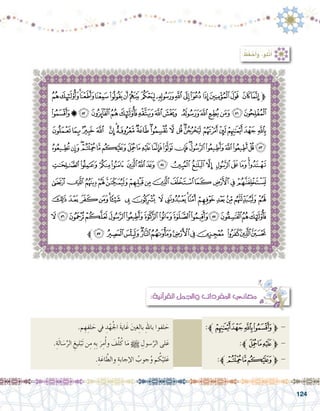 أَتْلُو، وَأَحْفَظُ
﴿ إِنَّمَا كَانَ قَوْلَ الْمُؤْمِنِينَ إِذَا دُعُوا إِلَى اللَّهِ وَرَسُولِهِ لِيَحْكُمَ بَيْنَهُمْ أَن يَقُولُوا سَمِعْنَا وَأَطَعْنَا وَأُولَٰئِكَ هُمُ
الْمُفْلِحُونَ ٥١ وَمَن يُطِعِ اللَّهَ وَرَسُولَهُ وَيَخْشَ اللَّهَ وَيَتَّقْهِ فَأُولَٰئِكَ هُمُ الْفَائِزُونَ ٥٢ ۞ وَأَقْسَمُوا
بِاللَّهِ جَهْدَ أَيْمَانِهِمْ لَئِنْ أَمَرْتَهُمْ لَيَخْرُجُنَّ قُل لَّا تُقْسِمُوا طَاعَةٌ مَّعْرُوفَةٌ إِنَّ اللَّهَ خَبِيرٌ بِمَا تَعْمَلُونَ
٥٣ قُلْ أَطِيعُوا اللَّهَ وَأَطِيعُوا الرَّسُولَ فَإِن تَوَلَّوْا فَإِنَّمَا عَلَيْهِ مَا حُمِّلَ وَعَلَيْكُم مَّا حُمِّلْتُمْ وَإِن تُطِيعُوهُ
تَهْتَدُوا وَمَا عَلَى الرَّسُولِ إِلَّا الْبَلَاغُ الْمُبِينُ ٥٤ وَعَدَ اللَّهُ الَّذِينَ آمَنُوا مِنكُمْ وَعَمِلُوا الصَّالِحَاتِ
لَيَسْتَخْلِفَنَّهُمْ فِي الْأَرْضِ كَمَا اسْتَخْلَفَ الَّذِينَ مِن قَبْلِهِمْ وَلَيُمَكِّنَنَّ لَهُمْ دِينَهُمُ الَّذِي ارْتَضَىٰ
لَهُمْ وَلَيُبَدِّلَنَّهُم مِّن بَعْدِ خَوْفِهِمْ أَمْنًا يَعْبُدُونَنِي لَا يُشْرِكُونَ بِي شَيْئًا وَمَن كَفَرَ بَعْدَ ذَٰلِكَ
فَأُولَٰئِكَ هُمُ الْفَاسِقُونَ ٥٥ وَأَقِيمُوا الصَّلَاةَ وَآتُوا الزَّكَاةَ وَأَطِيعُوا الرَّسُولَ لَعَلَّكُمْ تُرْحَمُونَ ٥٦ لَا
تَحْسَبَنَّ الَّذِينَ كَفَرُوا مُعْجِزِينَ فِي الْأَرْضِ وَمَأْوَاهُمُ النَّارُ وَلَبِئْسَ الْمَصِيرُ ٥٧ ﴾
معاني المفردات والجمل القرآنية:
- ﴿ وَأَقْسَمُوا بِاللَّهِ جَهْدَ أَيْمَانِهِمْ ﴾: حلفوا بالله بالغين غاية الجهد في حلفهم.
- ﴿ عَلَيْهِ مَا حُمِّلَ ﴾: على الرسول ﷺ ما كلف وأمر به من تبليغ الرسالة.
- ﴿ وَعَلَيْكُم مَّا حُمِّلْتُمْ ﴾: عليكم وجوب الإجابة والطاعة.
124